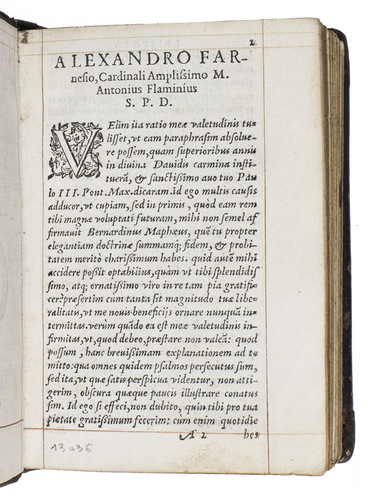 2
ALEXANDRO FAR-
nesio, Cardinali Amplissimo M.
Antonius Flaminius
S. P. D.
VElim ita ratio meæ valetudinis tu-
lisset, vt eam paraphrasim absolue-
re possem, quam superioribus annis
in diuina Dauidis carmina insti-
tuerã, & sanctissimo auo tuo Pau
lo III. Pont. Max. dicaram. id ego multis causis
adducor, vt cupiam, sed in primis, quòd eam rem
tibi magnæ voluptati futuram, mihi non semel af
firmauit Bernardinus Maphæus, quẽ tu propter
elegantiam doctrinæ summamq; fidem, & probi-
tatem meritò charissimum habes. quid autẽ mihi
accidere possit optabilius, quàm vt tibi splendidis
simo, atq; ornatissimo viro in re tam pia gratifi-
cer? præsertim cùm tanta sit magnitudo tuæ libe-
ralitatis, vt me nouis beneficijs ornare nunquã in-
termittas. verùm quãdo ea est meæ valetudinis in-
firmitas, vt, quod debeo, præstare non valeã: quod
possum, hanc breuissimam explanationem ad te
mitto: qua omnes quidem psalmos persecutus sum,
sed ita, vt quæ satis perspicua videntur, non atti-
gerim, obscura quæque paucis illustrare conatus
sim. Id ego si effeci, non dubito, quin tibi pro tua
pietate gratissimum fecerim: cùm enim quotidie
A 2 hos
13035